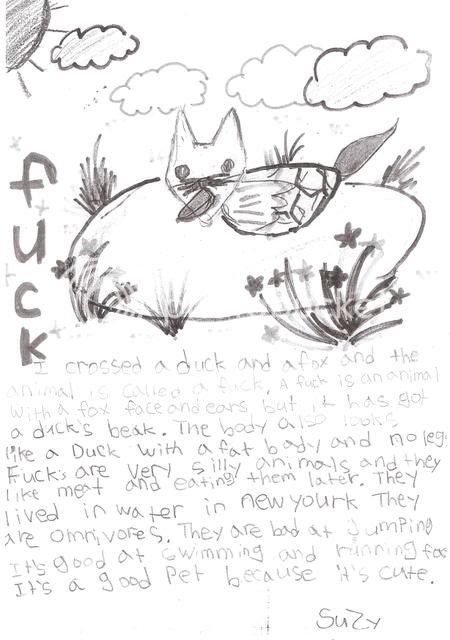 fuck
I crossed a duck and a fox and the
animal is called a fuck. A fuck is an animal
with a fox face and ears, but it has got
a duck's beak. The body also looks
like a Duck with a fat body and no legs
Fuck's are very silly animals and they
like meat and eating them later. They
lived in water in new yourk They
are omnivores. They are bad at Jumping
It's good at swimming and running fas
It's a good Pet because it's cute.
Suzy